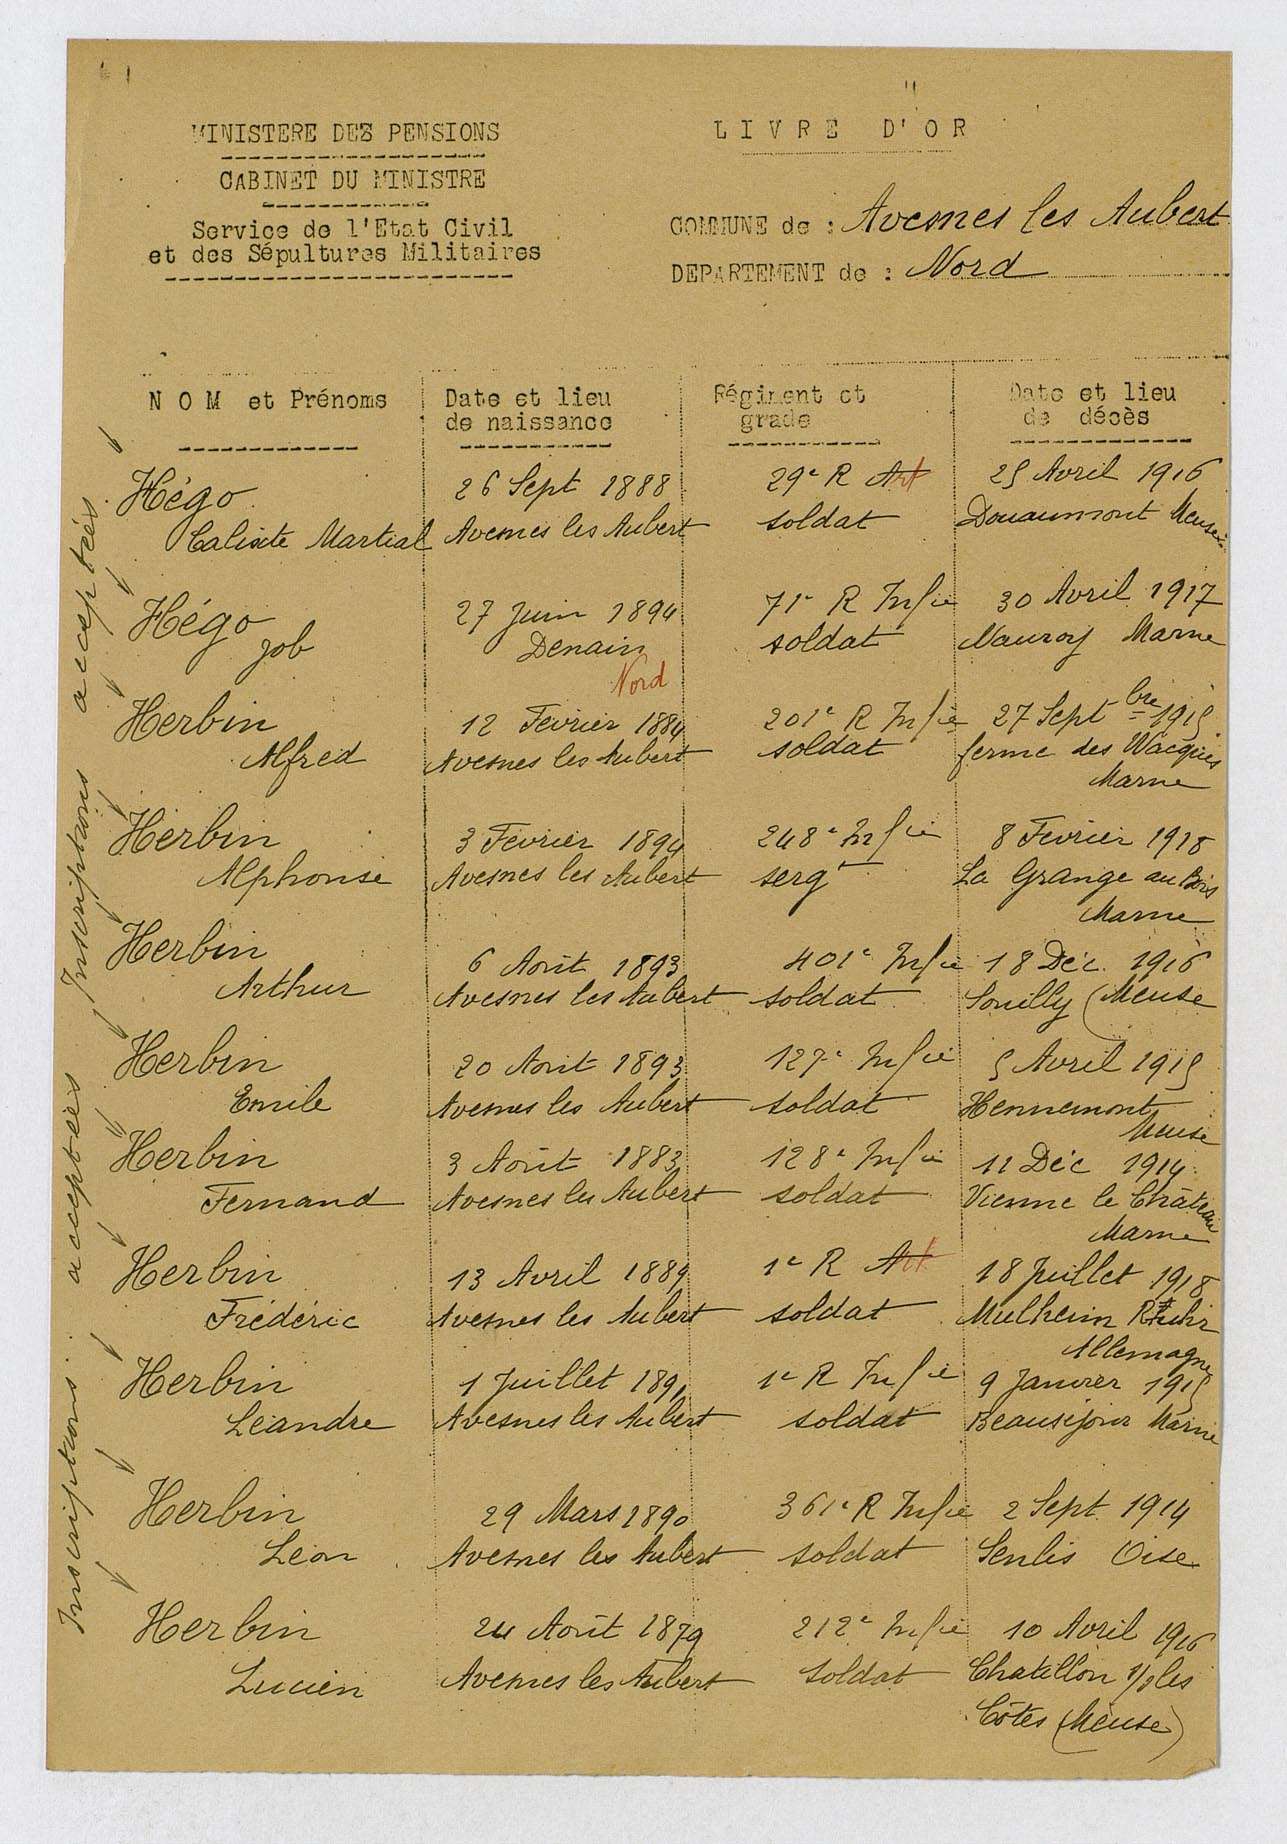 MINISTERE DES PENSIONS
CABINET DU MINISTRE
Service de l'Etat Civil
et des Sépultures Militaires
"
LIVRE D'OR
COMMUNE de : Avesnes les Aubert
DEPARTEMENT de : Nord
NOM et Prénoms
Date et lieu
de naissance
Régiment et
grade
Date et lieu
de décès
Hégo 26 Sept 1888 29e R Art 25 Avril 1916
Calixte Martial Avesnes les Aubert soldat Douaumont Meuse
Hégo 27 Juin 1894 71e R Infie 30 Avril 1917
Job Denain soldat Nauroy Marne
Nord
Herbin 12 Février 1884 201e R Infie 27 Septbre 1915
Alfred Avesnes les Aubert soldat ferme des Wacques
Marne
Herbin 3 Février 1894 248e Infie 8 Février 1918
Alphonse Avesnes les Aubert sergt La Grange au Bois
Marne
Herbin 6 Août 1893 401e Infie 18 Déc. 1916
Arthur Avesnes les Aubert soldat Souilly (Meuse
Herbin 20 Août 1893 127e Infie 5 Avril 1915
Emile Avesnes les Aubert soldat Hennemont
Meuse
Herbin 3 Août 1883 128e Infie 11 Déc 1914
Fernand Avesnes les Aubert soldat Vienne le Château
Marne
Herbin 13 Avril 1889 1e R Art 18 Juillet 1918
Frédéric Avesnes les Aubert soldat Mulheim Ruhr
Allemagne
Herbin 1 Juillet 1891 1e R Infie 9 Janvier 1915
Léandre Avesnes les Aubert soldat Beauséjour Marne
Herbin 29 Mars 1890 361e R Infie 2 Sept. 1914
Léon Avesnes les Aubert soldat Senlis Oise
Herbin 24 Août 1879 212e Infie 10 Avril 1916
Lucien Avesnes les Aubert soldat Chatillon s/s les
Côtes (Meuse)
Inscriptions acceptées Inscriptions acceptées